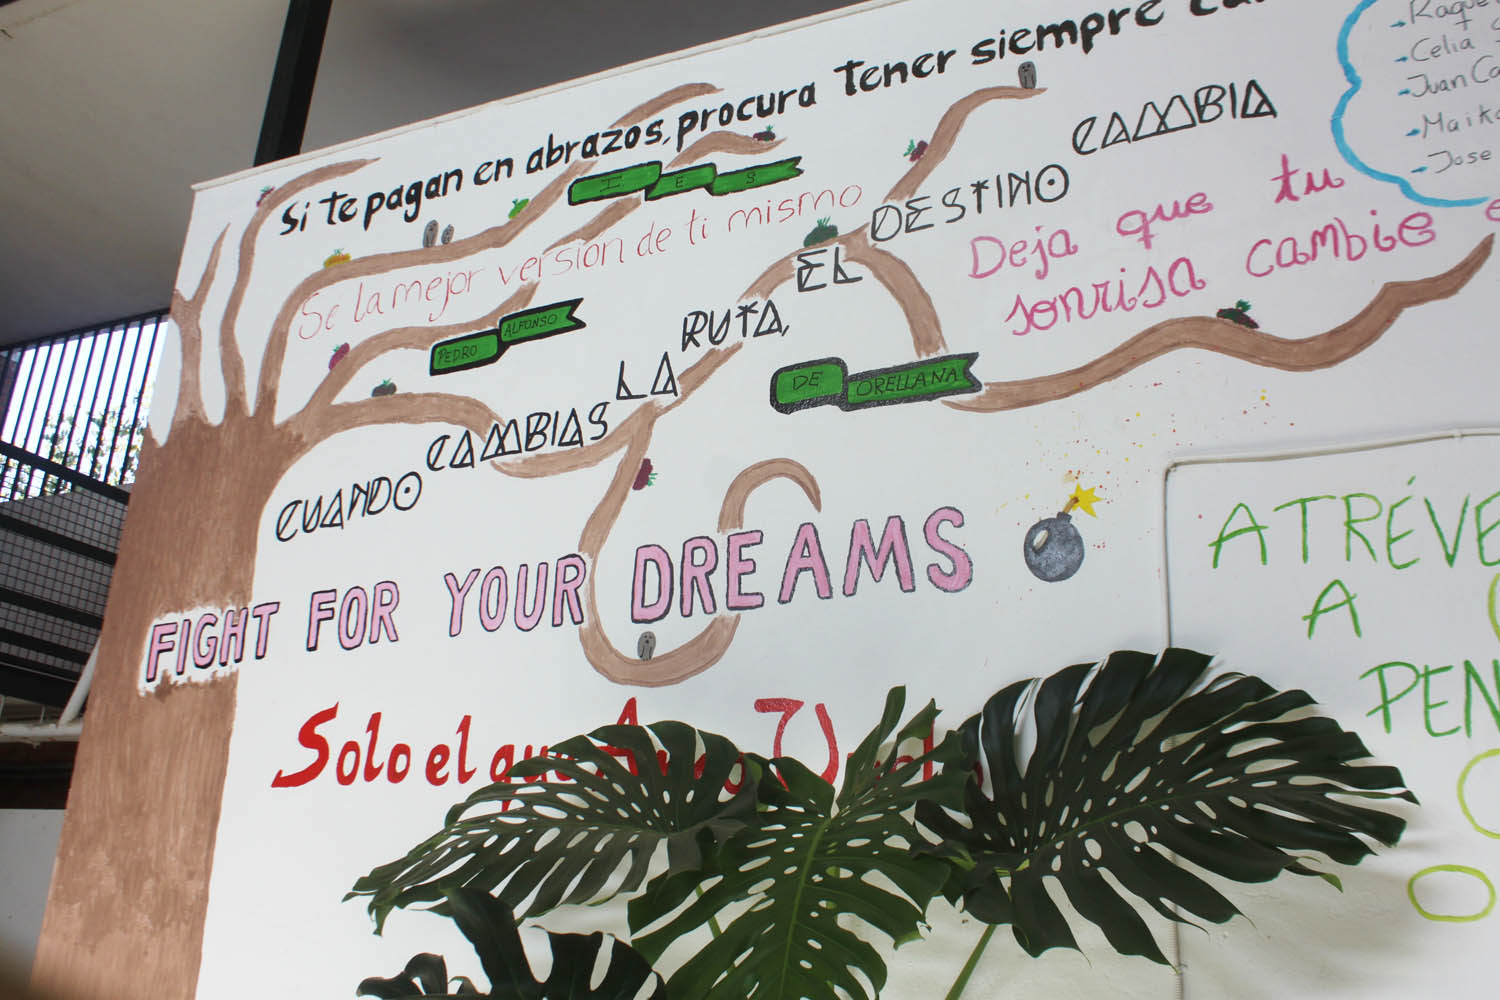 Si te pagan en abrazos, procura tener siempre
IES
Se la mejor version de ti mismo
PEDRO ALFONSO
DE ORELLANA
CUANDO CAMBIAS LA RUTA, EL DESTINO CAMBIA
Deja que tu
sonrisa cambie
FIGHT FOR YOUR DREAMS
Solo el que
- Raque
- Celia
- Juan Ca
- Maik
- Jose
ATRÉVE
A
PEN